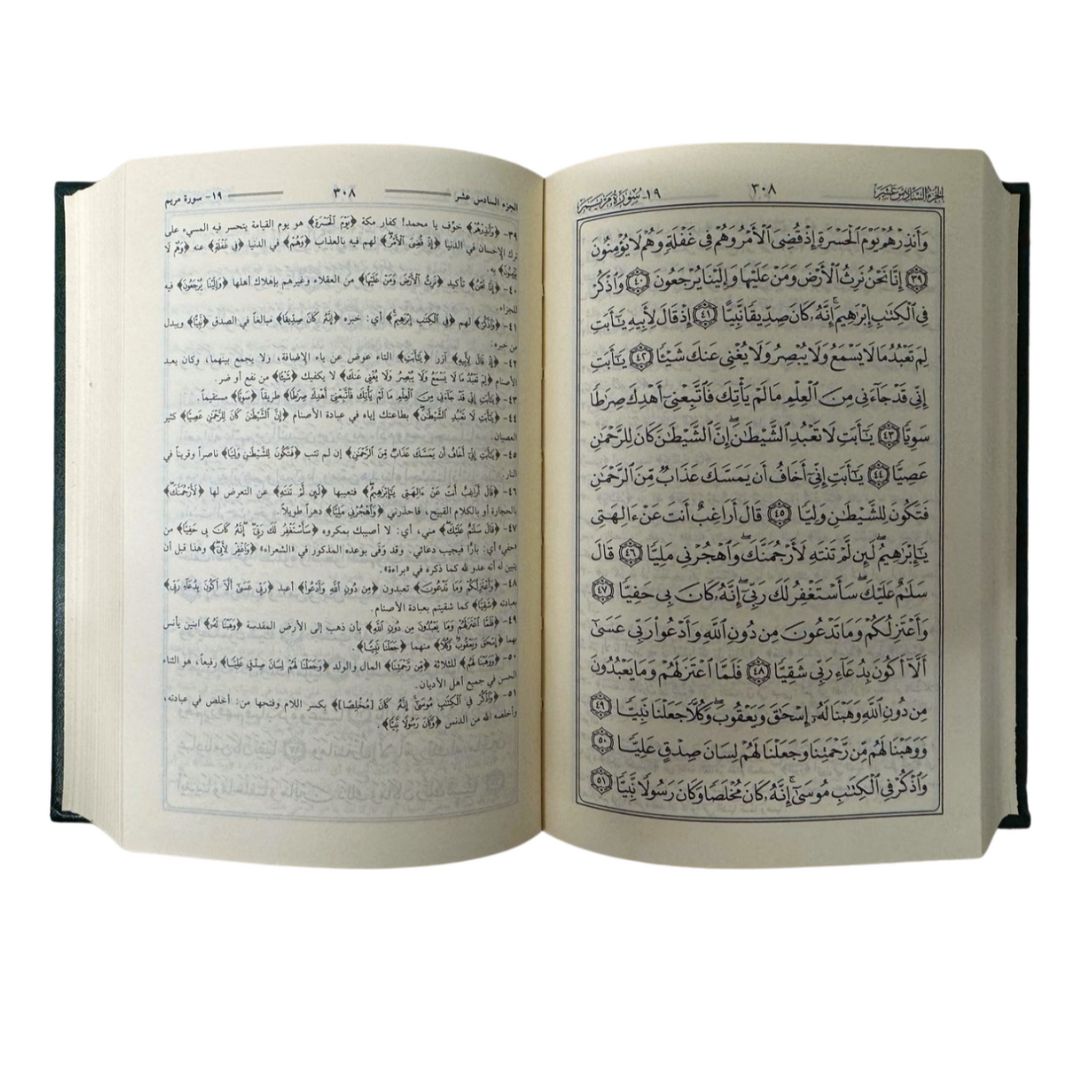 الجزء السادس عشر
٣٠٨
١٩- سورة مريم
وَأَنذِرْهُمْ يَوْمَ ٱلْحَسْرَةِ إِذْ قُضِىَ ٱلْأَمْرُ وَهُمْ فِى غَفْلَةٍ وَهُمْ لَا يُؤْمِنُونَ
﴿٣٩﴾ إِنَّا نَحْنُ نَرِثُ ٱلْأَرْضَ وَمَنْ عَلَيْهَا وَإِلَيْنَا يُرْجَعُونَ ﴿٤٠﴾ وَٱذْكُرْ
فِى ٱلْكِتَٰبِ إِبْرَٰهِيمَ ۚ إِنَّهُۥ كَانَ صِدِّيقًا نَّبِيًّا ﴿٤١﴾ إِذْ قَالَ لِأَبِيهِ يَٰٓأَبَتِ
لِمَ تَعْبُدُ مَا لَا يَسْمَعُ وَلَا يُبْصِرُ وَلَا يُغْنِى عَنكَ شَيْـًٔا ﴿٤٢﴾ يَٰٓأَبَتِ
إِنِّى قَدْ جَآءَنِى مِنَ ٱلْعِلْمِ مَا لَمْ يَأْتِكَ فَٱتَّبِعْنِىٓ أَهْدِكَ صِرَٰطًا
سَوِيًّا ﴿٤٣﴾ يَٰٓأَبَتِ لَا تَعْبُدِ ٱلشَّيْطَٰنَ ۖ إِنَّ ٱلشَّيْطَٰنَ كَانَ لِلرَّحْمَٰنِ
عَصِيًّا ﴿٤٤﴾ يَٰٓأَبَتِ إِنِّىٓ أَخَافُ أَن يَمَسَّكَ عَذَابٌ مِّنَ ٱلرَّحْمَٰنِ
فَتَكُونَ لِلشَّيْطَٰنِ وَلِيًّا ﴿٤٥﴾ قَالَ أَرَاغِبٌ أَنتَ عَنْ ءَالِهَتِى
يَٰٓإِبْرَٰهِيمُ ۖ لَئِن لَّمْ تَنتَهِ لَأَرْجُمَنَّكَ ۖ وَٱهْجُرْنِى مَلِيًّا ﴿٤٦﴾ قَالَ
سَلَٰمٌ عَلَيْكَ ۖ سَأَسْتَغْفِرُ لَكَ رَبِّىٓ ۖ إِنَّهُۥ كَانَ بِى حَفِيًّا ﴿٤٧﴾
وَأَعْتَزِلُكُمْ وَمَا تَدْعُونَ مِن دُونِ ٱللَّهِ وَأَدْعُوا۟ رَبِّى عَسَىٰٓ
أَلَّآ أَكُونَ بِدُعَآءِ رَبِّى شَقِيًّا ﴿٤٨﴾ فَلَمَّا ٱعْتَزَلَهُمْ وَمَا يَعْبُدُونَ
مِن دُونِ ٱللَّهِ وَهَبْنَا لَهُۥٓ إِسْحَٰقَ وَيَعْقُوبَ ۖ وَكُلًّا جَعَلْنَا نَبِيًّا ﴿٤٩﴾
وَوَهَبْنَا لَهُم مِّن رَّحْمَتِنَا وَجَعَلْنَا لَهُمْ لِسَانَ صِدْقٍ عَلِيًّا ﴿٥٠﴾
وَٱذْكُرْ فِى ٱلْكِتَٰبِ مُوسَىٰٓ ۚ إِنَّهُۥ كَانَ مُخْلَصًا وَكَانَ رَسُولًا نَّبِيًّا ﴿٥١﴾
الجزء السادس عشر
٣٠٨
١٩- سورة مريم
٣٩- ﴿وَأَنذِرْهُمْ﴾ خوِّف يا محمد! كفار مكة ﴿يَوْمَ الْحَسْرَةِ﴾ هو يوم القيامة يتحسر فيه المسيء على
ترك الإحسان في الدنيا ﴿إِذْ قُضِيَ الْأَمْرُ﴾ لهم فيه بالعذاب ﴿وَهُمْ﴾ في الدنيا ﴿فِي غَفْلَةٍ﴾ عنه ﴿وَهُمْ لَا
يُؤْمِنُونَ﴾ به.
٤٠- ﴿إِنَّا نَحْنُ﴾ تأكيد ﴿نَرِثُ الْأَرْضَ وَمَنْ عَلَيْهَا﴾ من العقلاء وغيرهم بإهلاك أهلها ﴿وَإِلَيْنَا يُرْجَعُونَ﴾ فيه
للجزاء.
٤١- ﴿وَاذْكُرْ﴾ لهم ﴿فِي الْكِتَابِ إِبْرَاهِيمَ﴾ أي: خبره ﴿إِنَّهُ كَانَ صِدِّيقًا﴾ مبالغاً في الصدق ﴿نَّبِيًّا﴾ ويبدل
من خبره:
٤٢- ﴿إِذْ قَالَ لِأَبِيهِ﴾ آزر ﴿يَا أَبَتِ﴾ التاء عوض عن ياء الإضافة، ولا يجمع بينهما، وكان يعبد
الأصنام ﴿لِمَ تَعْبُدُ مَا لَا يَسْمَعُ وَلَا يُبْصِرُ وَلَا يُغْنِي عَنكَ﴾ لا يكفيك ﴿شَيْئًا﴾ من نفع أو ضر.
٤٣- ﴿يَا أَبَتِ إِنِّي قَدْ جَاءَنِي مِنَ الْعِلْمِ مَا لَمْ يَأْتِكَ فَاتَّبِعْنِي أَهْدِكَ صِرَاطًا﴾ طريقاً ﴿سَوِيًّا﴾ مستقيماً.
٤٤- ﴿يَا أَبَتِ لَا تَعْبُدِ الشَّيْطَانَ﴾ بطاعتك إياه في عبادة الأصنام ﴿إِنَّ الشَّيْطَانَ كَانَ لِلرَّحْمَٰنِ عَصِيًّا﴾ كثير
العصيان
٤٥- ﴿يَا أَبَتِ إِنِّي أَخَافُ أَن يَمَسَّكَ عَذَابٌ مِّنَ الرَّحْمَٰنِ﴾ إن لم تتب ﴿فَتَكُونَ لِلشَّيْطَانِ وَلِيًّا﴾ ناصراً وقريناً في
النار.
٤٦- ﴿قَالَ أَرَاغِبٌ أَنتَ عَنْ آلِهَتِي يَا إِبْرَاهِيمُ﴾ فتعيبها ﴿لَئِن لَّمْ تَنتَهِ﴾ عن التعرض لها ﴿لَأَرْجُمَنَّكَ﴾
بالحجارة أو بالكلام القبيح، فاحذرني ﴿وَاهْجُرْنِي مَلِيًّا﴾ دهراً طويلاً.
٤٧- ﴿قَالَ سَلَامٌ عَلَيْكَ﴾ مني، أي: لا أصيبك بمكروه ﴿سَأَسْتَغْفِرُ لَكَ رَبِّي إِنَّهُ كَانَ بِي حَفِيًّا﴾ من
حفي؛ أي: بارًّا فيجيب دعائي. وقد وفى بوعده المذكور في «الشعراء» ﴿وَاغْفِرْ لِأَبِي﴾ وهذا قبل أن
يتبين له أنه عدو لله كما ذكره في «براءة».
٤٨- ﴿وَأَعْتَزِلُكُمْ وَمَا تَدْعُونَ﴾ تعبدون ﴿مِن دُونِ اللَّهِ وَأَدْعُوا﴾ أعبد ﴿رَبِّي عَسَىٰ أَلَّا أَكُونَ بِدُعَاءِ رَبِّي﴾
بعبادته ﴿شَقِيًّا﴾ كما شقيتم بعبادة الأصنام.
٤٩- ﴿فَلَمَّا اعْتَزَلَهُمْ وَمَا يَعْبُدُونَ مِن دُونِ اللَّهِ﴾ بأن ذهب إلى الأرض المقدسة ﴿وَهَبْنَا لَهُ﴾ ابنين يأنس
بهما ﴿إِسْحَاقَ وَيَعْقُوبَ وَكُلًّا﴾ منهما ﴿جَعَلْنَا نَبِيًّا﴾.
٥٠- ﴿وَوَهَبْنَا لَهُم﴾ للثلاثة ﴿مِّن رَّحْمَتِنَا﴾ المال والولد ﴿وَجَعَلْنَا لَهُمْ لِسَانَ صِدْقٍ عَلِيًّا﴾ رفيعاً، هو الثناء
الحسن في جميع أهل الأديان.
٥١- ﴿وَاذْكُرْ فِي الْكِتَابِ مُوسَىٰ إِنَّهُ كَانَ [مُخْلِصًا]﴾ بكسر اللام وفتحها من: أخلص في عبادته،
وأخلصه الله من الدنس ﴿وَكَانَ رَسُولًا نَّبِيًّا﴾.